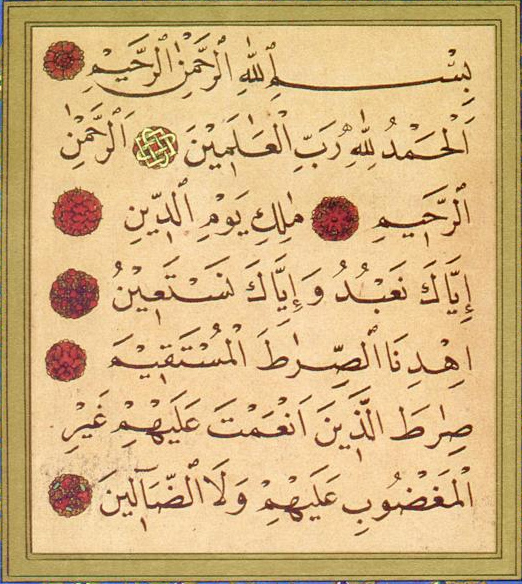 بِسْمِ اللهِ الرَّحْمٰنِ الرَّحِيمِ
اَلْحَمْدُ لِلّٰهِ رَبِّ الْعَالَمِينَ اَلرَّحْمٰنِ
الرَّحِيمِ مٰلِكِ يَوْمِ الدِّينِ
إِيَّاكَ نَعْبُدُ وَإِيَّاكَ نَسْتَعِينُ
اِهْدِنَا الصِّرٰطَ الْمُسْتَقِيمَ
صِرٰطَ الَّذِينَ اَنْعَمْتَ عَلَيْهِمْ غَيْرِ
الْمَغْضُوبِ عَلَيْهِمْ وَلَا الضَّالِّينَ